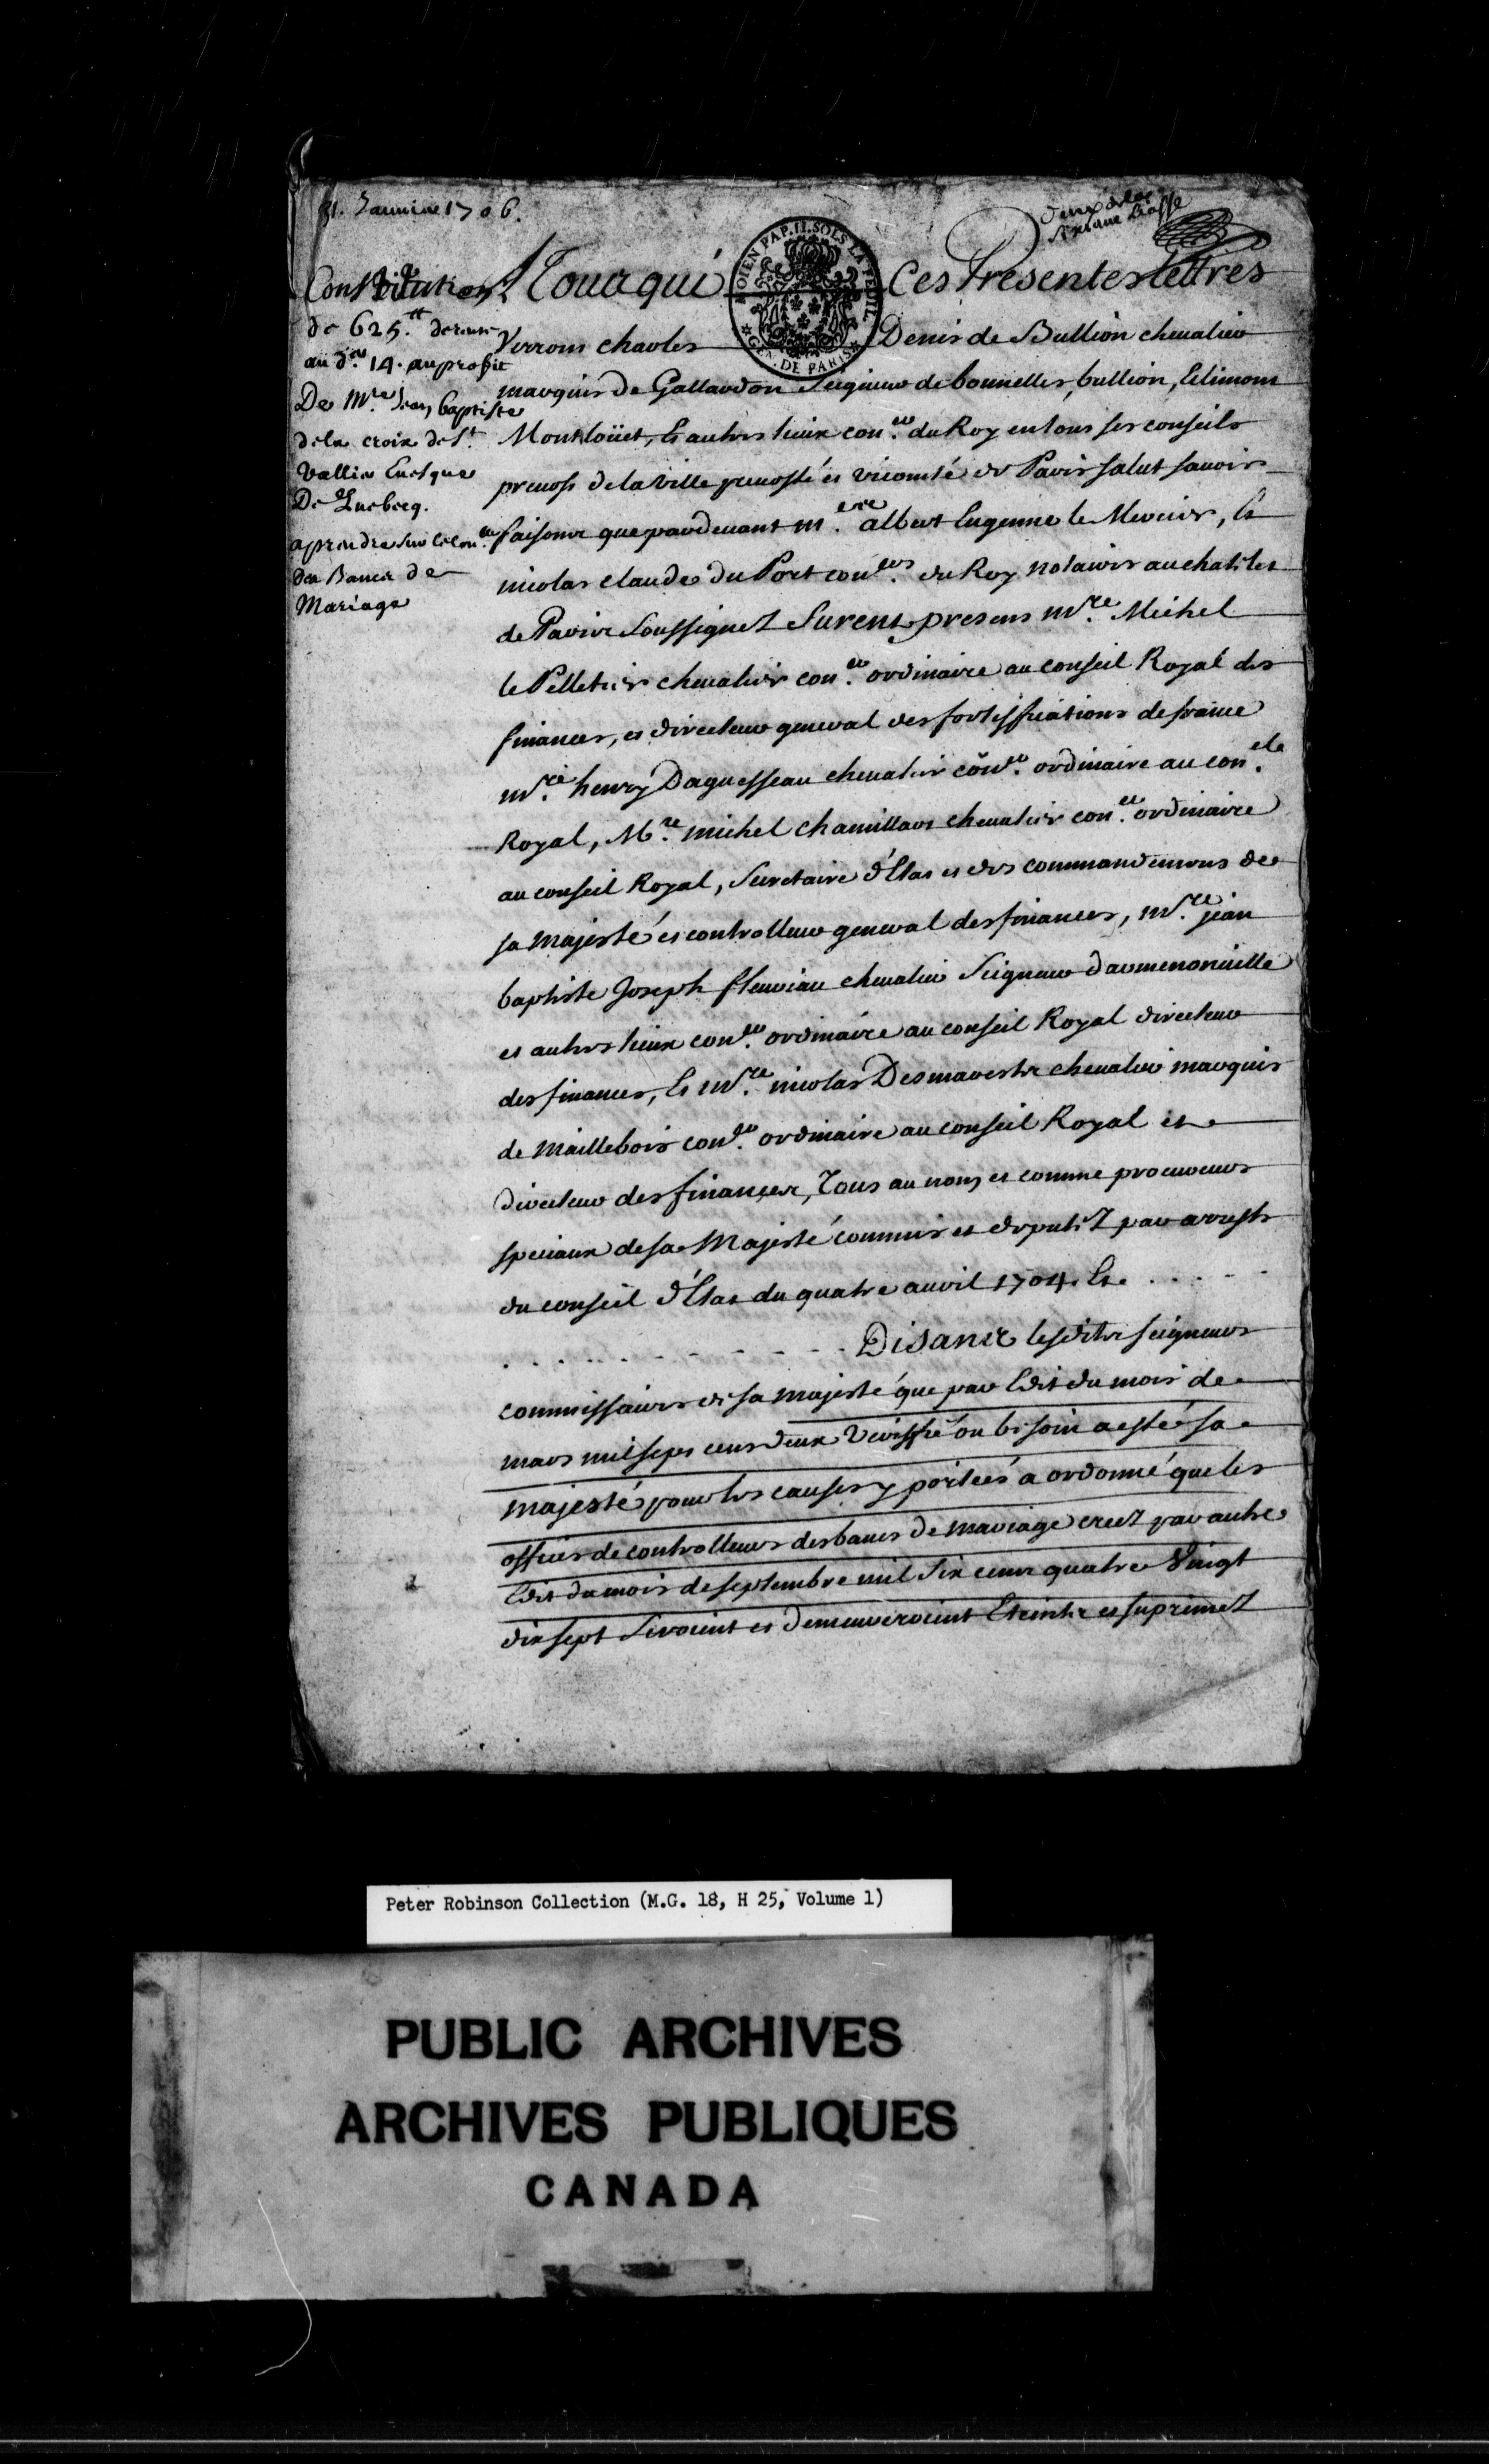 31. Janvier 1706.
Constitution
de 625.tt de rente
au d.er 14. au profit
De M.re Jean baptiste
dela croix de St.
Vallier Evesque
De Quebecq.
a prendre sur les con.
des Bancs de
Mariage
A Tous ceux qui Ces Presentes Lettres
MOIEN PAP. II. SOLS LA FEUIL
GEN. DE PARIS
Verrons charles Denis de Bullion chevalier
marquis de Gallardon Seigneur de bonnelles, bullion, Esclimont
Montloüet, Et autres lieux con.er du Roy en tous ses conseils
prevost de la ville prevosté et vicomté de Paris salut savoir
faisons que pardevant m.es albert Eugenne le Mercier, Et
nicolas claude du Port con.ers du Roy notaires au chatelet
de Paris Soussignez Furent presens m.re Michel
le Pelletier chevalier con.er ordinaire au conseil Royal des
finances, et directeur general des fortiffications de france
m.re henry Daguesseau chevalier con.er ordinaire au con.el
Royal, M.re michel chamillart chevalier con.er ordinaire
au conseil Royal, Secretaire d'Etat et des commandemens de
sa Majesté et controlleur general des finances, m.re jean
baptiste Joseph fleuriau chevalier Seigneur d'armenonville
et autres lieux con.er ordinaire au conseil Royal directeur
des finances, Et m.re nicolas Desmarestz chevalier marquis
de Maillebois con.er ordinaire au conseil Royal et
directeur des finances, Tous au nom et comme procureurs
speciaux de sa Majesté commis et deputéz par arrests
du conseil d'Etat du quatre avril 1704. Et . . . . .
. . . . . . . . . . Disant lesdits seigneurs
commissaires de sa majesté que par Edit du mois de
mars mil sept cens deux veriffié ou besoin a esté sa
majesté pour les causes y portées a ordonné que les
offices de controlleurs des bancs de mariage creez par autre
Edit du mois de septembre mil six cens quatre Vingt
dix sept Seroient et demeureroient Eteints et suprimez
Peter Robinson Collection (M.G. 18, H 25, Volume 1)
PUBLIC ARCHIVES
ARCHIVES PUBLIQUES
CANADA